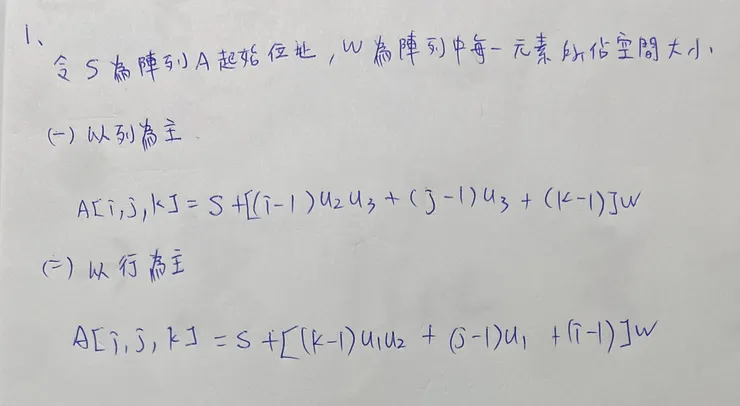 1、
令 S 為陣列 A 起始位址，W 為陣列中每一元素所佔空間大小.
(一) 以列為主.
A[i,j,k] = S+[(i-1)u₂u₃+(j-1)u₃+(k-1)]W
(二) 以行為主
A[i,j,k] = S+[(k-1)u₁u₂ + (j-1)u₁ +(i-1)]W